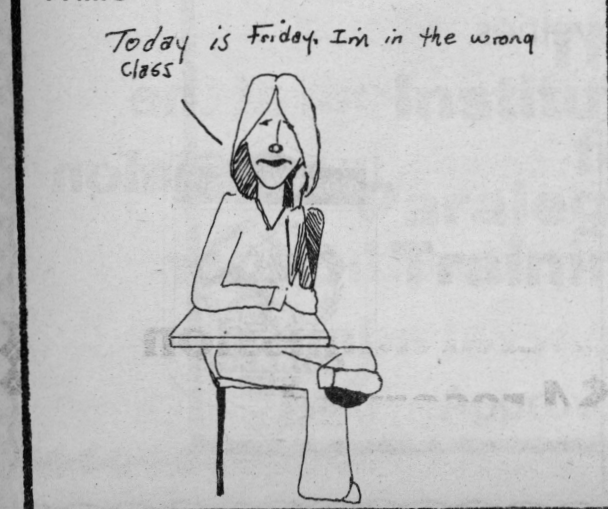 Today is Friday. I'm in the wrong
class